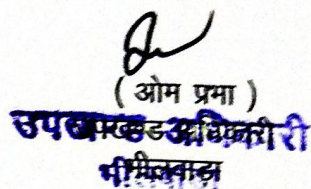 ( ओम प्रभा )
उपखण्ड अधिकारी
भीलवाड़ा